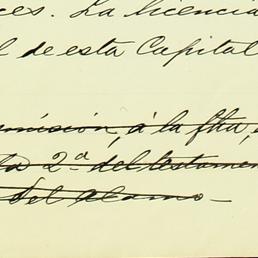 ces. La licencia
l de esta Capital
misión, á la fha,
la 2ª del testamen
del alamo